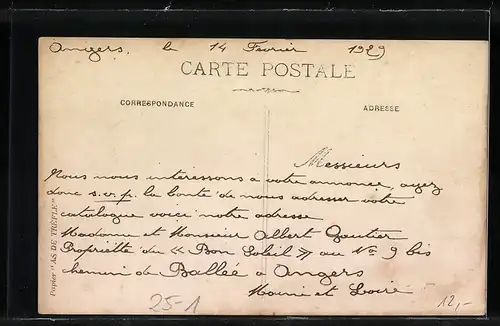 Angers, le 14 Fevrier 1929
CARTE POSTALE
CORRESPONDANCE
ADRESSE
Messieurs
Nous nous interessons a votre annonce, ayez
donc s.v.p. la bonté de nous adresser votre
catalogue voici notre adresse
Madame et Monsieur Albert Gautier
Propriette du « Bon Soleil » au No 9 bis
chemin de Ballée à Angers
Maine et Loire
Papier "AS DE TRÈFLE"
25-1
12,-